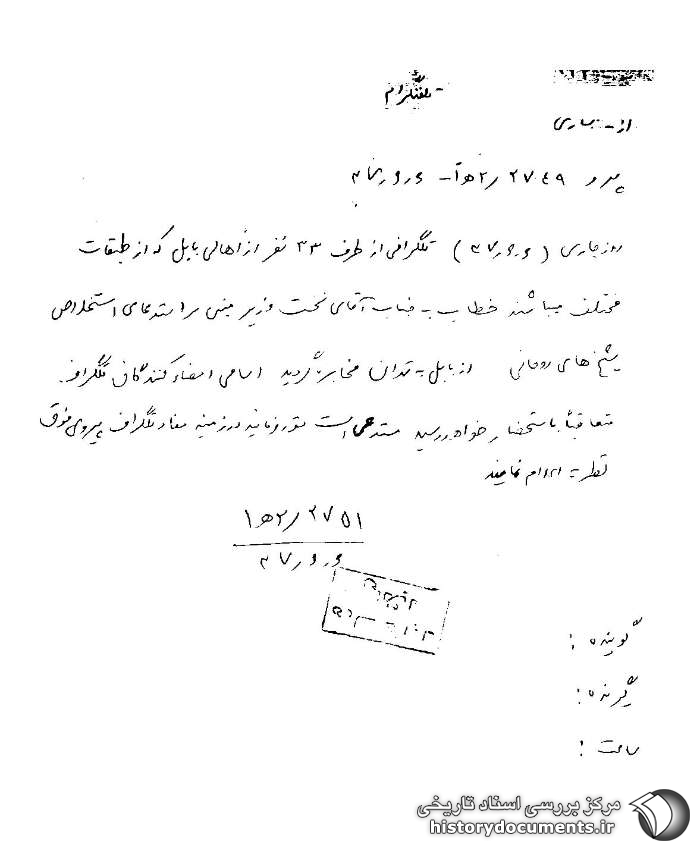 تلفنگرام
از – ساری
پیرو ۲۷۰۴۹ /۲ھ‍۱ – ۴۷/۶/۶
روز جاری ( ۴۷/۶/۶ ) تلگرافی از طرف ۳۳ نفر از اهالی بابل که از طبقات
مختلف میباشند خطاب به جناب آقای نخست وزیر مبنی بر استدعای استخلاص
شیخ‌های روحانی از بابل به تهران مخابره گردید اسامی امضاء کنندگان تلگراف
متعاقباً باستحضار خواهد رسید مستدعی است مقرر فرمایند در زمینه مفاد تلگراف پیروی فوق
اقدام نمایند
۲۷۵۱ /۲ھ‍۱
گوینده :
گیرنده :
ساعت :
مرکز بررسی اسناد تاریخی
historydocuments.ir